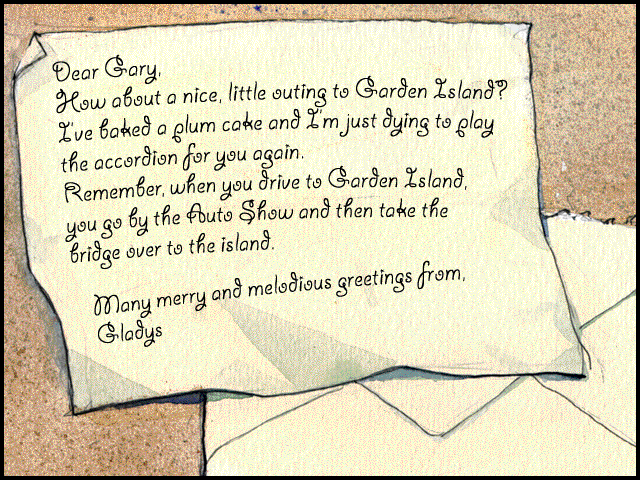 Dear Gary,
How about a nice, little outing to Garden Island?
I've baked a plum cake and I'm just dying to play
the accordion for you again.
Remember, when you drive to Garden Island,
you go by the Auto Show and then take the
bridge over to the island.
Many merry and melodious greetings from,
Gladys